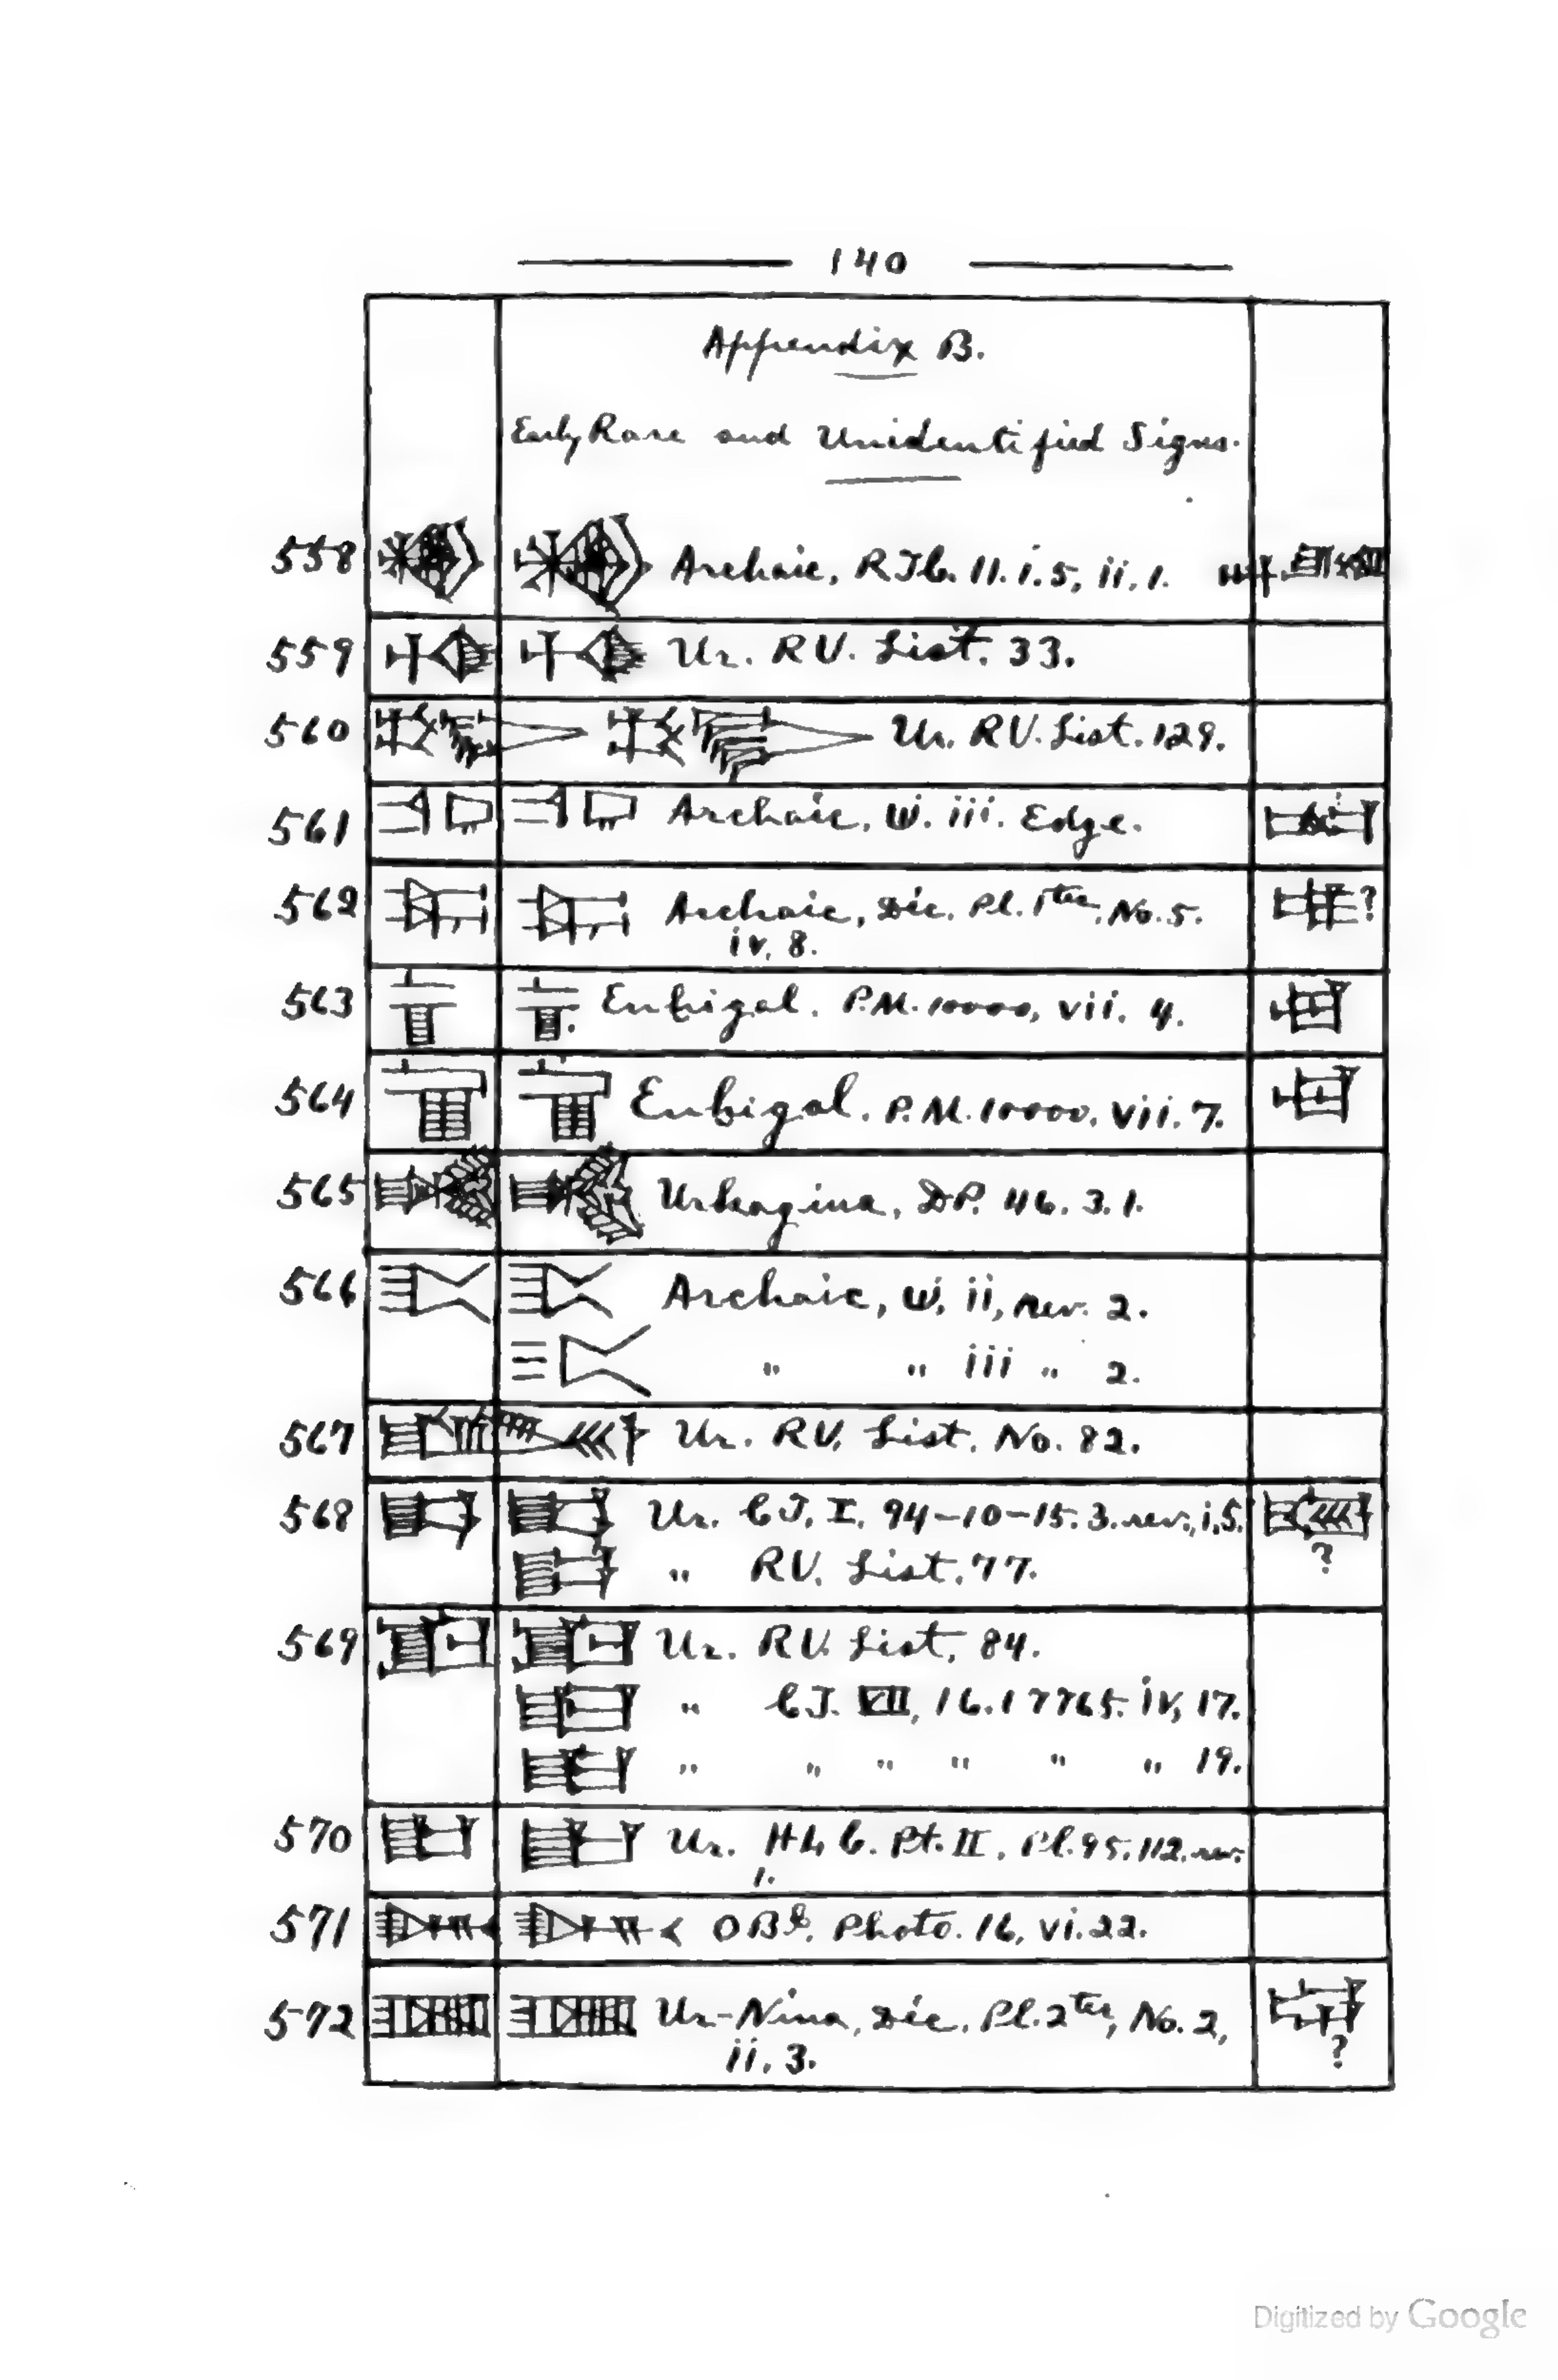 140
Appendix B.
Early Rare and Unidentified Signs.
558 Archaic, RTC. 11. i. 5, ii. 1.
559 Ur. RV. List. 33.
560 Ur. RV. List. 129.
561 Archaic, W. iii. Edge.
562 Archaic, Déc. Pl. 1ter, No. 5.
iv, 8.
563 Enhigal. P.M. 10000, vii. 4.
564 Enhigal. P.M. 10000, vii. 7.
565 Urkagina, DP. 46. 3. 1.
566 Archaic, W. ii, rev. 2.
" " iii " 2.
567 Ur. RV. List. No. 82.
568 Ur. CT. I. 94-10-15. 3. rev., i. 5.
" RV. List. 77. ?
569 Ur. RV. List, 84.
" CT. VII, 16. 17765. iv, 17.
" " " " " " 19.
570 Ur. HLC. Pt. II, Pl. 95. 112. rev.
1.
571 Photo. 16, vi. 22.
572 Ur-Nina, Déc. Pl. 2ter, No. 2,
ii. 3. ?
Digitized by Google